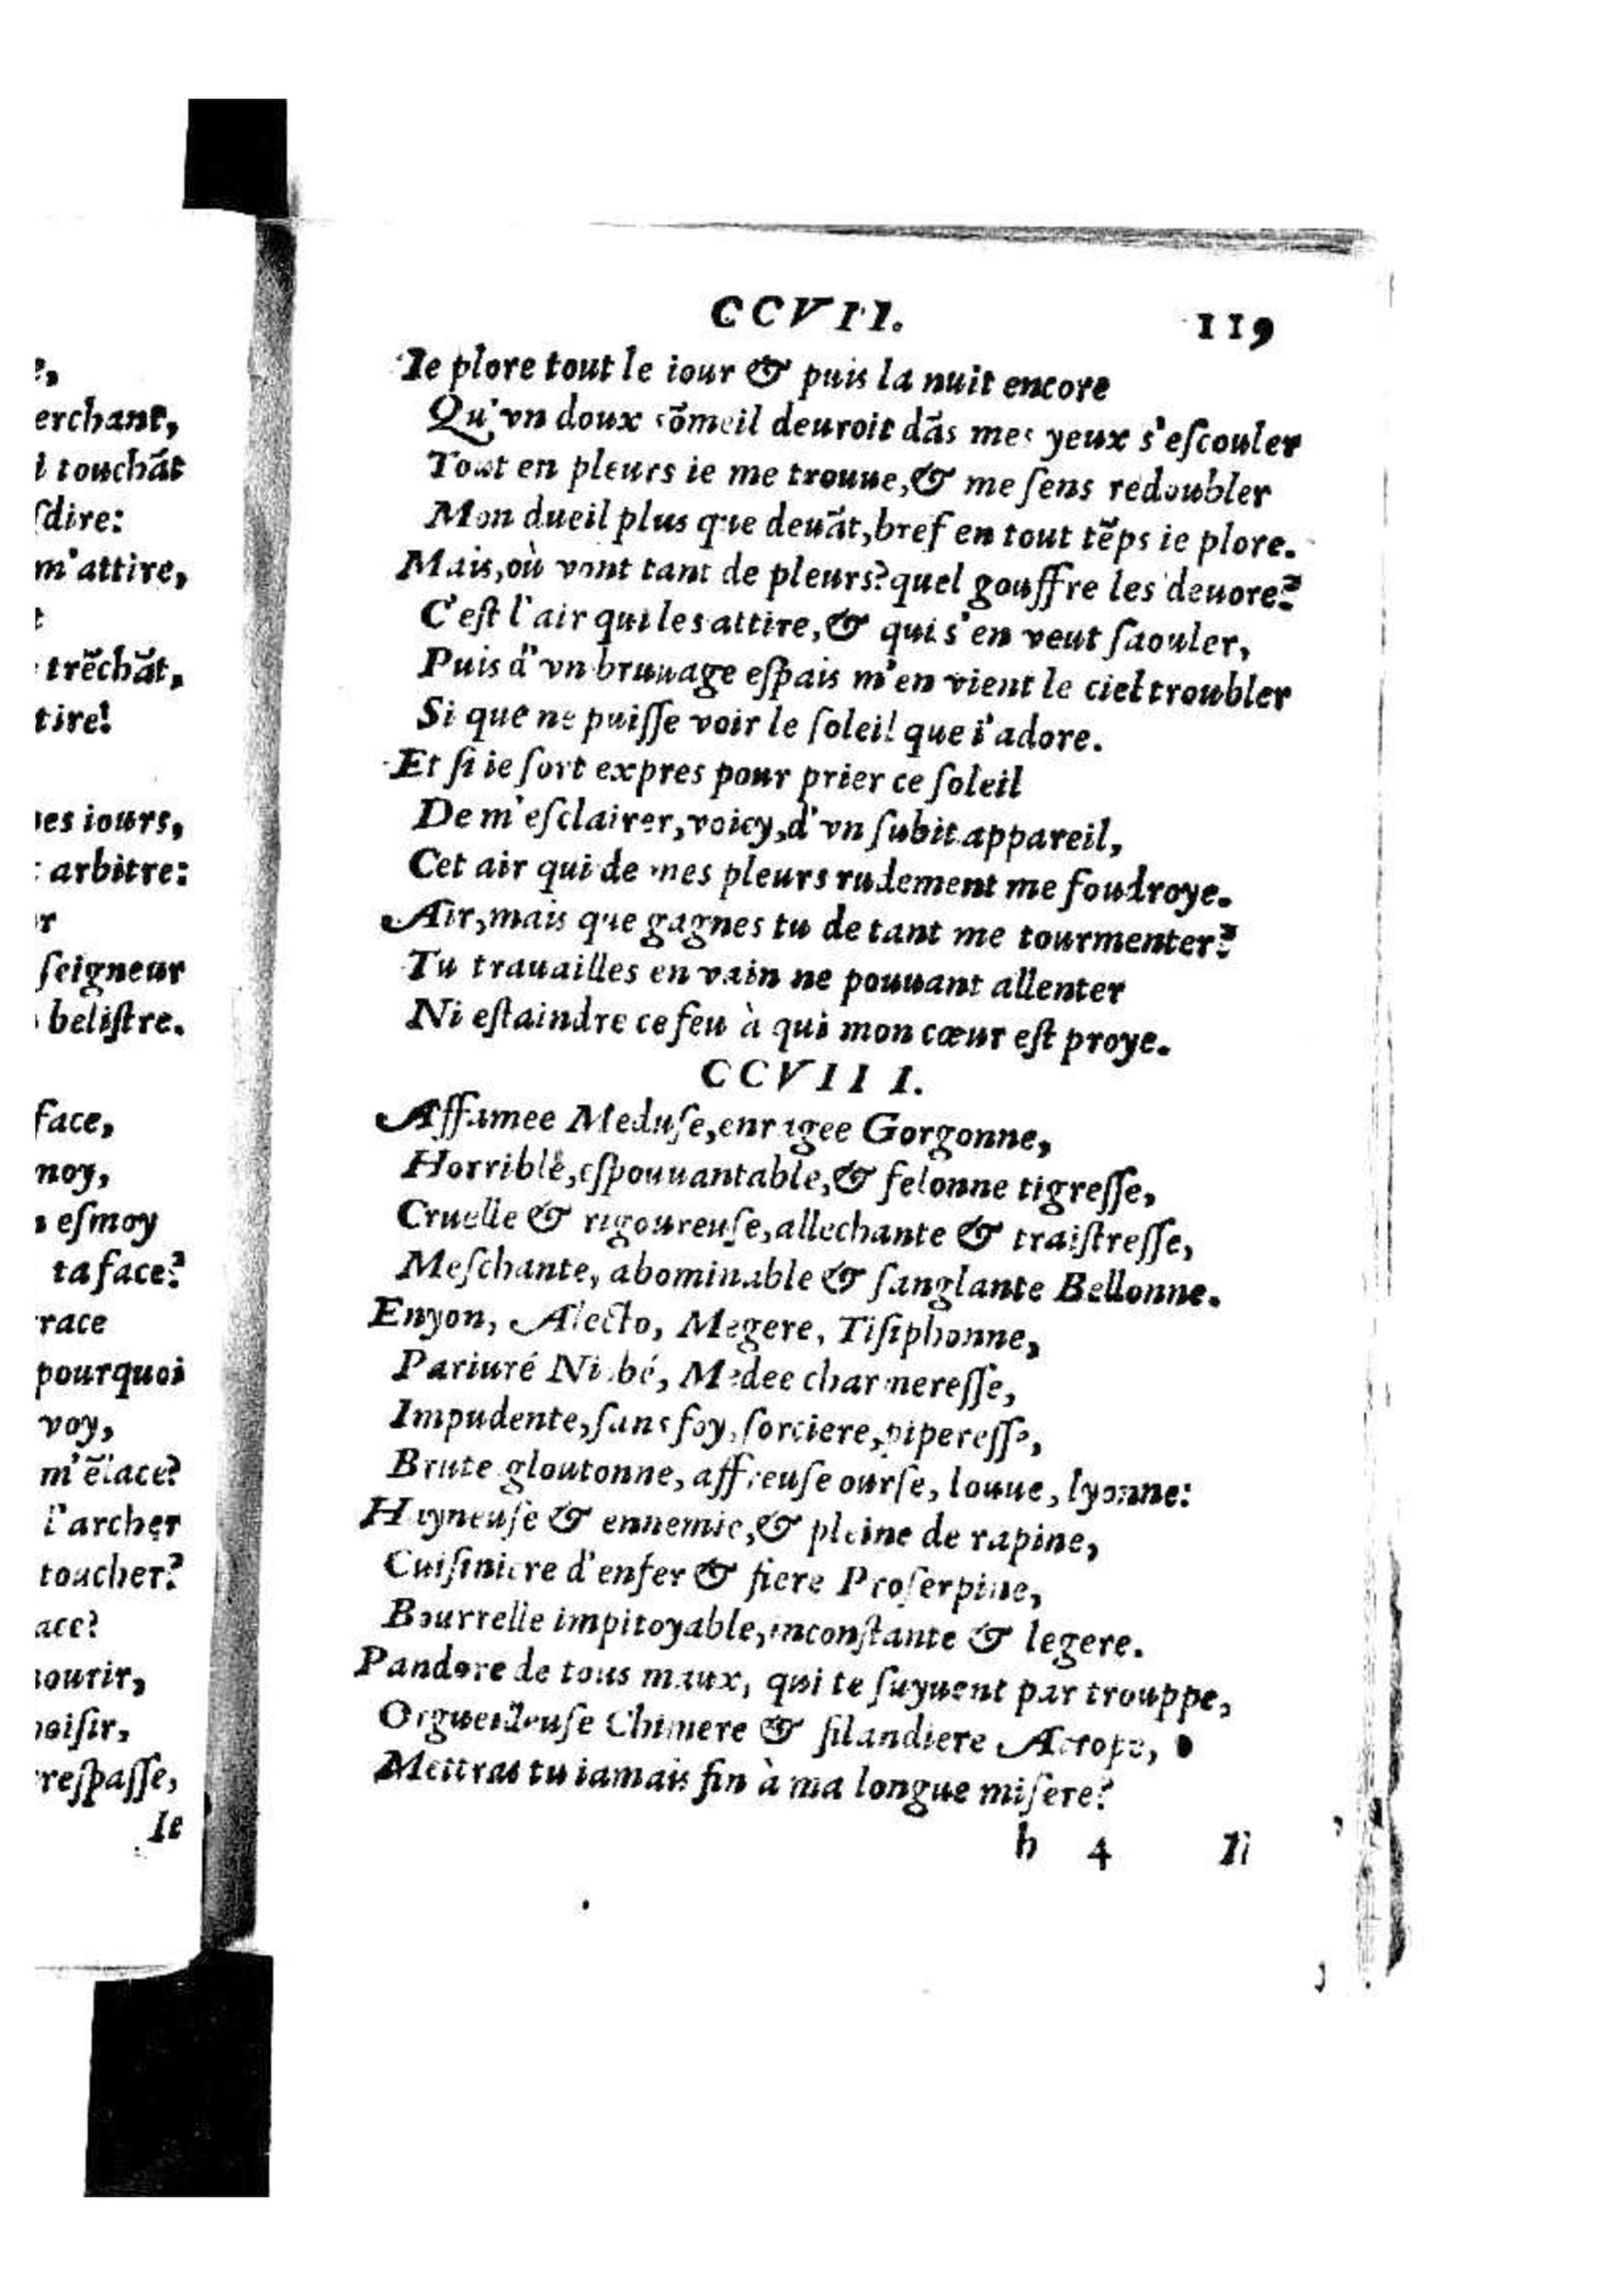 e,
erchant,
touchãt
ſdire:
m'attire,
trẽchãt,
tire!
iours,
arbitre:
ſeigneur
beliſtre.
face,
moy,
eſmoy
ta face?
race
pourquoi
voy,
m'ẽlace?
l'archer
toucher?
ace?
mourir,
oiſir,
reſpaſſe,
Ie
CCVII. 119
Ie plore tout le iour & puis la nuit encore
Qu'vn doux sõmeil deuroit dãs mes yeux s'eſcouler
Tout en pleurs ie me trouue, & me ſens redoubler
Mon dueil plus que deuãt, bref en tout tẽps ie plore.
Mais, où vont tant de pleurs? quel gouffre les deuore?
C'eſt l'air qui les attire, & qui s'en veut ſaouler,
Puis d'vn bruuage eſpais m'en vient le ciel troubler
Si que ne puiſſe voir le ſoleil que i'adore.
Et ſi ie ſort expres pour prier ce ſoleil
De m'eſclairer, voicy, d'vn ſubit appareil,
Cet air qui de mes pleurs rudement me foudroye.
Air, mais que gagnes tu de tant me tourmenter?
Tu trauailles en vain ne pouuant allenter
Ni eſtaindre ce feu à qui mon cœur eſt proye.
CCVIII.
Affamee Meduſe, enragee Gorgonne,
Horrible, eſpouuantable, & felonne tigreſſe,
Cruelle & rigoureuſe, allechante & traiſtreſſe,
Meſchante, abominable & ſanglante Bellonne.
Enyon, Alecto, Megere, Tiſiphonne,
Pariuré Niobé, Medee charmereſſe,
Impudente, ſans foy, ſorciere, pipereſſe,
Brute gloutonne, affreuſe ourſe, louue, lyonne:
Hayneuſe & ennemie, & pleine de rapine,
Cuiſiniere d'enfer & fiere Proſerpine,
Bourrelle impitoyable, inconſtante & legere.
Pandore de tous maux, qui te ſuyuent par trouppe,
Orgueilleuſe Chimere & filandiere Atrope,
Mettras tu iamais fin à ma longue miſere?
h 4 Il